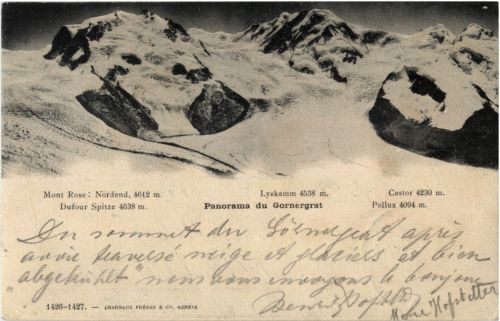 Mont Rose: Nordend, 4612 m.
Dufour Spitze 4638 m.
Lyskamm 4538 m.
Panorama du Gornergrat
Castor 4230 m.
Pollux 4094 m.
Du sommet du Görnergrat après
avoir traversé neige et glaciers et bien
"abgekühlt" nous vous envoyons le bonjour
Hofstetter
1426-1427. — CHARNAUX FRÈRES & Cie, GENÈVE